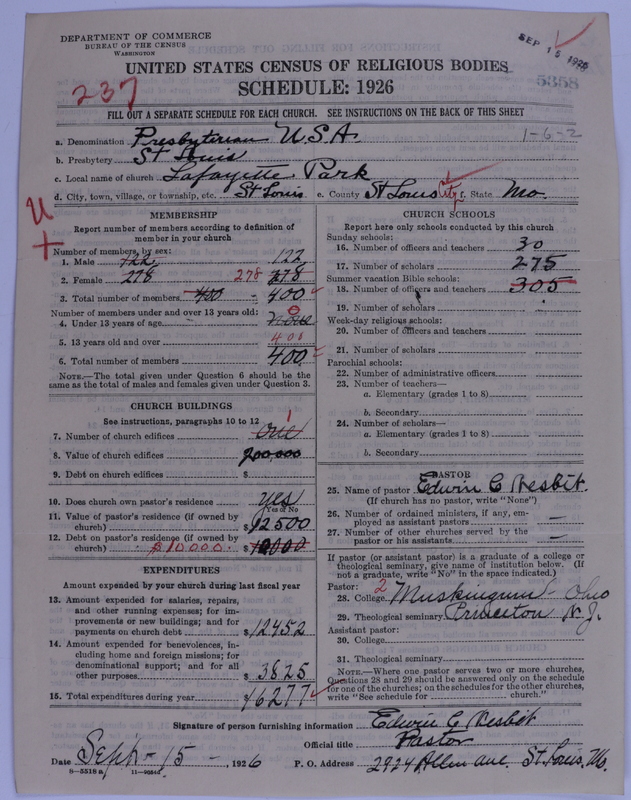 DEPARTMENT OF COMMERCE
BUREAU OF THE CENSUS
WASHINGTON
SEP 15 1926
UNITED STATES CENSUS OF RELIGIOUS BODIES
5358
SCHEDULE: 1926
237
FILL OUT A SEPARATE SCHEDULE FOR EACH CHURCH. SEE INSTRUCTIONS ON THE BACK OF THIS SHEET
a. Denomination Presbyterian U.S.A. 1-6-2
b. Presbytery St Louis
c. Local name of church Lafayette Park
d. City, town, village, or township, etc. St Louis e. County St Louis City f. State Mo.
MEMBERSHIP
Report number of members according to definition of
member in your church
Number of members, by sex:
1. Male 122 122
2. Female 278 278 278
3. Total number of members 400 400
Number of members under and over 13 years old:
4. Under 13 years of age none 0
5. 13 years old and over 400
6. Total number of members 400
NOTE.—The total given under Question 6 should be the
same as the total of males and females given under Question 3.
CHURCH BUILDINGS
See instructions, paragraphs 10 to 12
7. Number of church edifices One 1
8. Value of church edifices 200,000
9. Debt on church edifices $
10. Does church own pastor's residence yes
Yes or No
11. Value of pastor's residence (if owned by
church) $ 12500
12. Debt on pastor's residence (if owned by
church) $10000 $
EXPENDITURES
Amount expended by your church during last fiscal year
13. Amount expended for salaries, repairs,
and other running expenses; for im-
provements or new buildings; and for
payments on church debt $ 12452
14. Amount expended for benevolences, in-
cluding home and foreign missions; for
denominational support; and for all
other purposes $ 3825
15. Total expenditures during year $ 16277
CHURCH SCHOOLS
Report here only schools conducted by this church
Sunday schools:
16. Number of officers and teachers 30
17. Number of scholars 275
Summer vacation Bible schools:
18. Number of officers and teachers 305
19. Number of scholars
Week-day religious schools:
20. Number of officers and teachers
21. Number of scholars
Parochial schools:
22. Number of administrative officers
23. Number of teachers—
a. Elementary (grades 1 to 8)
b. Secondary
24. Number of scholars—
a. Elementary (grades 1 to 8)
b. Secondary
PASTOR
25. Name of pastor Edwin C Nesbit.
(If church has no pastor, write "None")
26. Number of ordained ministers, if any, em-
ployed as assistant pastors —
27. Number of other churches served by the
pastor or his assistants —
If pastor (or assistant pastor) is a graduate of a college or
theological seminary, give name of institution below. (If
not a graduate, write "No" in the space indicated.)
Pastor: 2
28. College Muskingum - Ohio
29. Theological seminary Princeton N.J.
Assistant pastor:
30. College
31. Theological seminary
NOTE.—Where one pastor serves two or more churches,
Questions 28 and 29 should be answered only on the schedule
for one of the churches; on the schedules for the other churches,
write "See schedule for church."
Signature of person furnishing information Edwin C Nesbit
Official title Pastor
Date Sept - 15 -, 1926 P. O. Address 2924 Allen ave. St. Louis. Mo.
8—5518 a